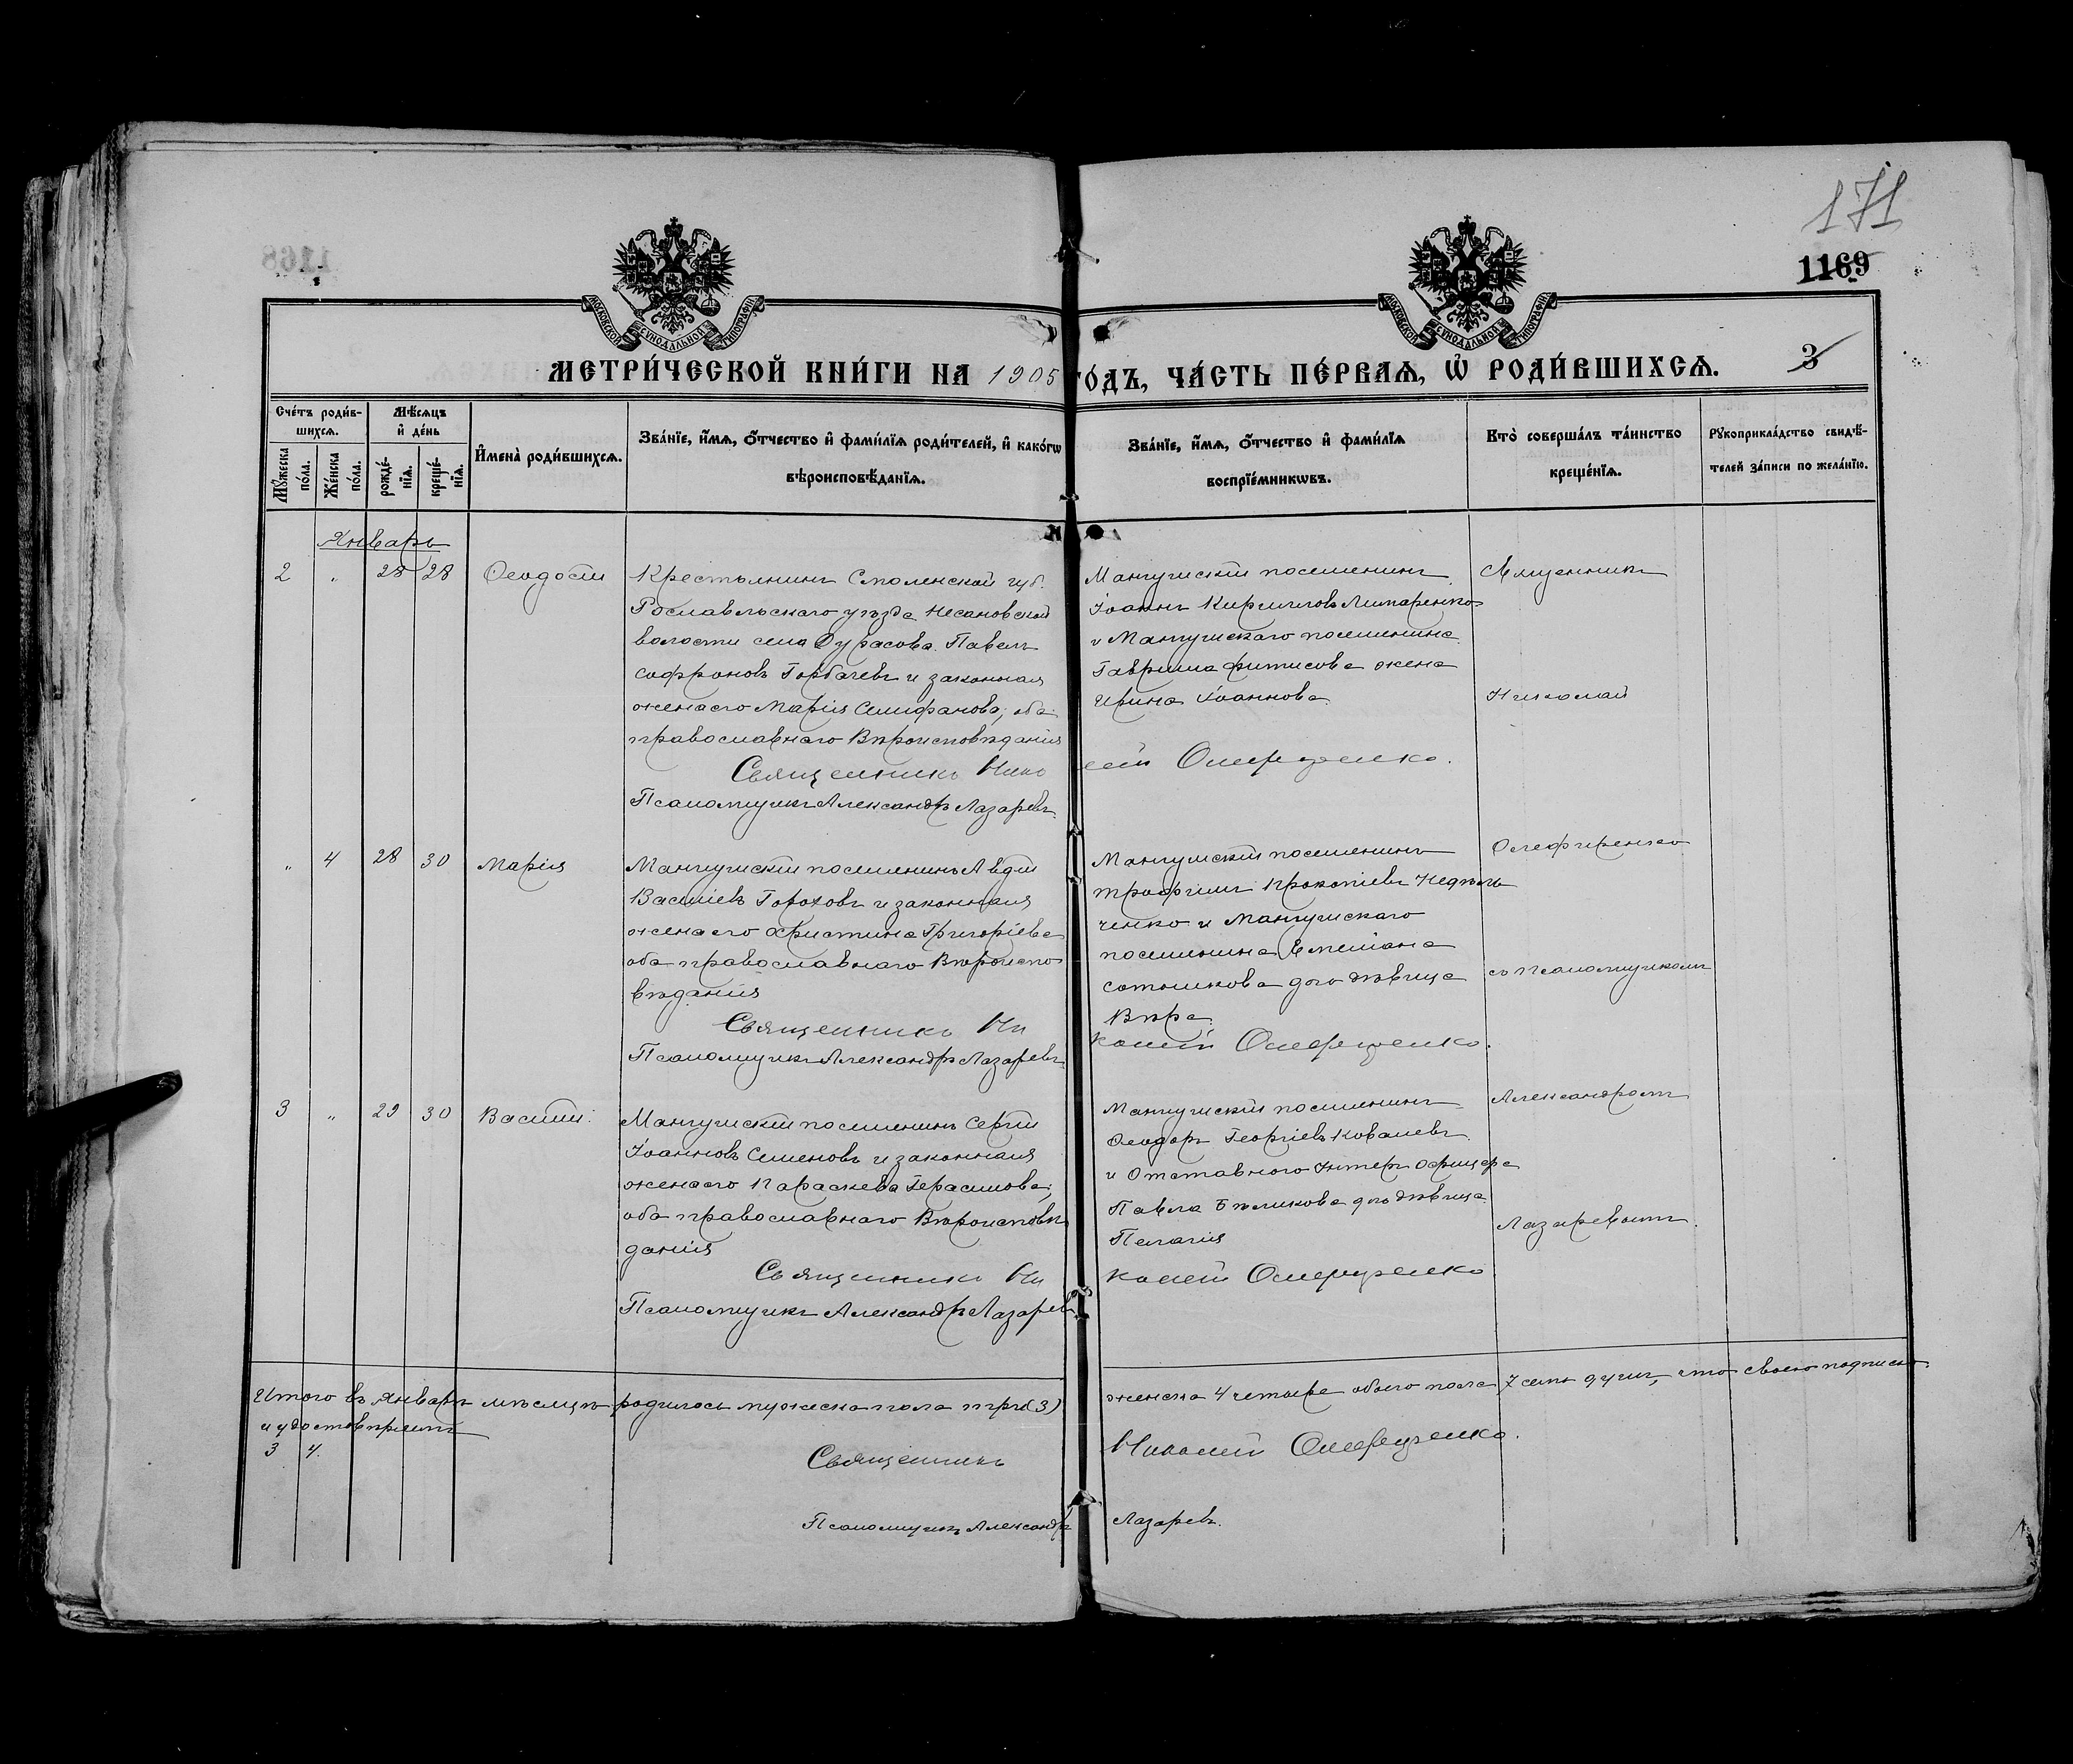 171
1169
МОСКОВСКОЙ СѴНОДАЛЬНОЙ ТИПОГРАФІИ
МОСКОВСКОЙ СѴНОДАЛЬНОЙ ТИПОГРАФІИ
МЕТРИ́ЧЕСКОЙ КНИ́ГИ НА 1905 ГО́ДЪ, ЧА́СТЬ ПЕ́РВАѦ, Ѡ҆ РОДИ́ВШИХСѦ.
3
Сче́тъ роди́в-
шихсѧ.
Мꙋ́жеска
по́ла.
Же́нска
по́ла.
Мѣ́сѧцъ
и҆ де́нь
рожде́-
нїѧ.
креще́-
нїѧ.
И҆мена̀ роди́вшихсѧ.
Зва́нїе, и҆́мѧ, ѻ҆́тчество и҆ фами́лїѧ роди́телей, и҆ како́гѡ
вѣроисповѣ́данїѧ.
Зва́нїе, и҆́мѧ, ѻ҆́тчество и҆ фами́лїѧ
воспрїе́мникѡвъ.
Кто̀ соверша́лъ та́инство
креще́нїѧ.
Рꙋкоприкла́дство свидѣ́-
телей за́писи по жела́нїю.
Январь
2 " 28 28 Ѳеодосій
Крестьянинъ Смоленской губ.
Рославльскаго уѣзда
волости села Дурасова Павелъ
Софроновъ Горбачевъ и законная
жена его Марія Селифанова, оба
православнаго Вѣроисповѣданія
Мангушскій поселянинъ
Іоаннъ Кирилловъ Литаренко
и Мангушскаго поселянина
Гавріила Фитисова жена
Ирина Іоаннова
Священникъ
Николай
Священникъ Николай Олефиренко.
Псаломщикъ Александръ Лазаревъ
" 4 28 30 Марія
Мангушскій поселянинъ Авдій
Василіевъ Гороховъ и законная
жена его Христина Григоріева
оба православнаго Вѣроиспо
вѣданія
Мангушскій поселянинъ
Трофимъ Прокопіевъ Недѣль
ченко и Мангушскаго
поселянина Емеліана
Сотникова дочь дѣвица
Вѣра
Олефиренко
съ псаломщикомъ
Священникъ Николай Олефиренко.
Псаломщикъ Александръ Лазаревъ
3 " 29 30 Василій
Мангушскій поселянинъ Сергій
Іоанновъ Семеновъ и законная
жена его Параскева Герасимова,
оба православнаго Вѣроисповѣ
данія
Мангушскій поселянинъ
Ѳеодоръ Георгіевъ Ковалевъ
и Отставного Унтеръ Офицера
Павла Бѣликова дочь дѣвица
Пелагія
Александромъ
Лазаревымъ.
Священникъ Николай Олефиренко
Псаломщикъ Александръ Лазаревъ
Итого въ Январѣ мѣсяцѣ родилось мужеска пола три (3) женска 4 четыре обоего пола 7 семь душъ, что своею подписью
и удостовѣряемъ
3 4.
Священникъ Николай Олефиренко.
Псаломщикъ Александръ Лазаревъ.